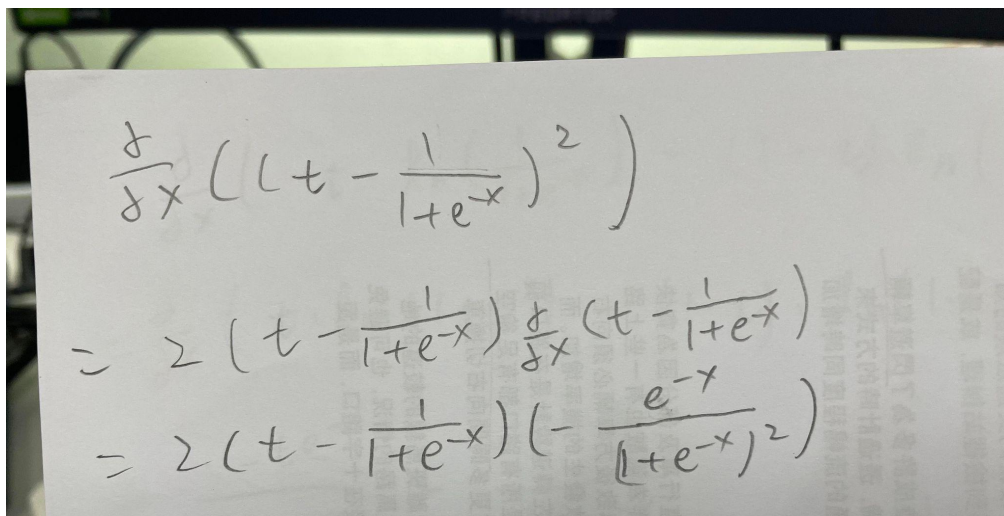 ∂/∂x ((t - 1/(1+e^-x))^2)
= 2(t - 1/(1+e^-x)) ∂/∂x (t - 1/(1+e^-x))
= 2(t - 1/(1+e^-x))(- e^-x/(1+e^-x)^2)